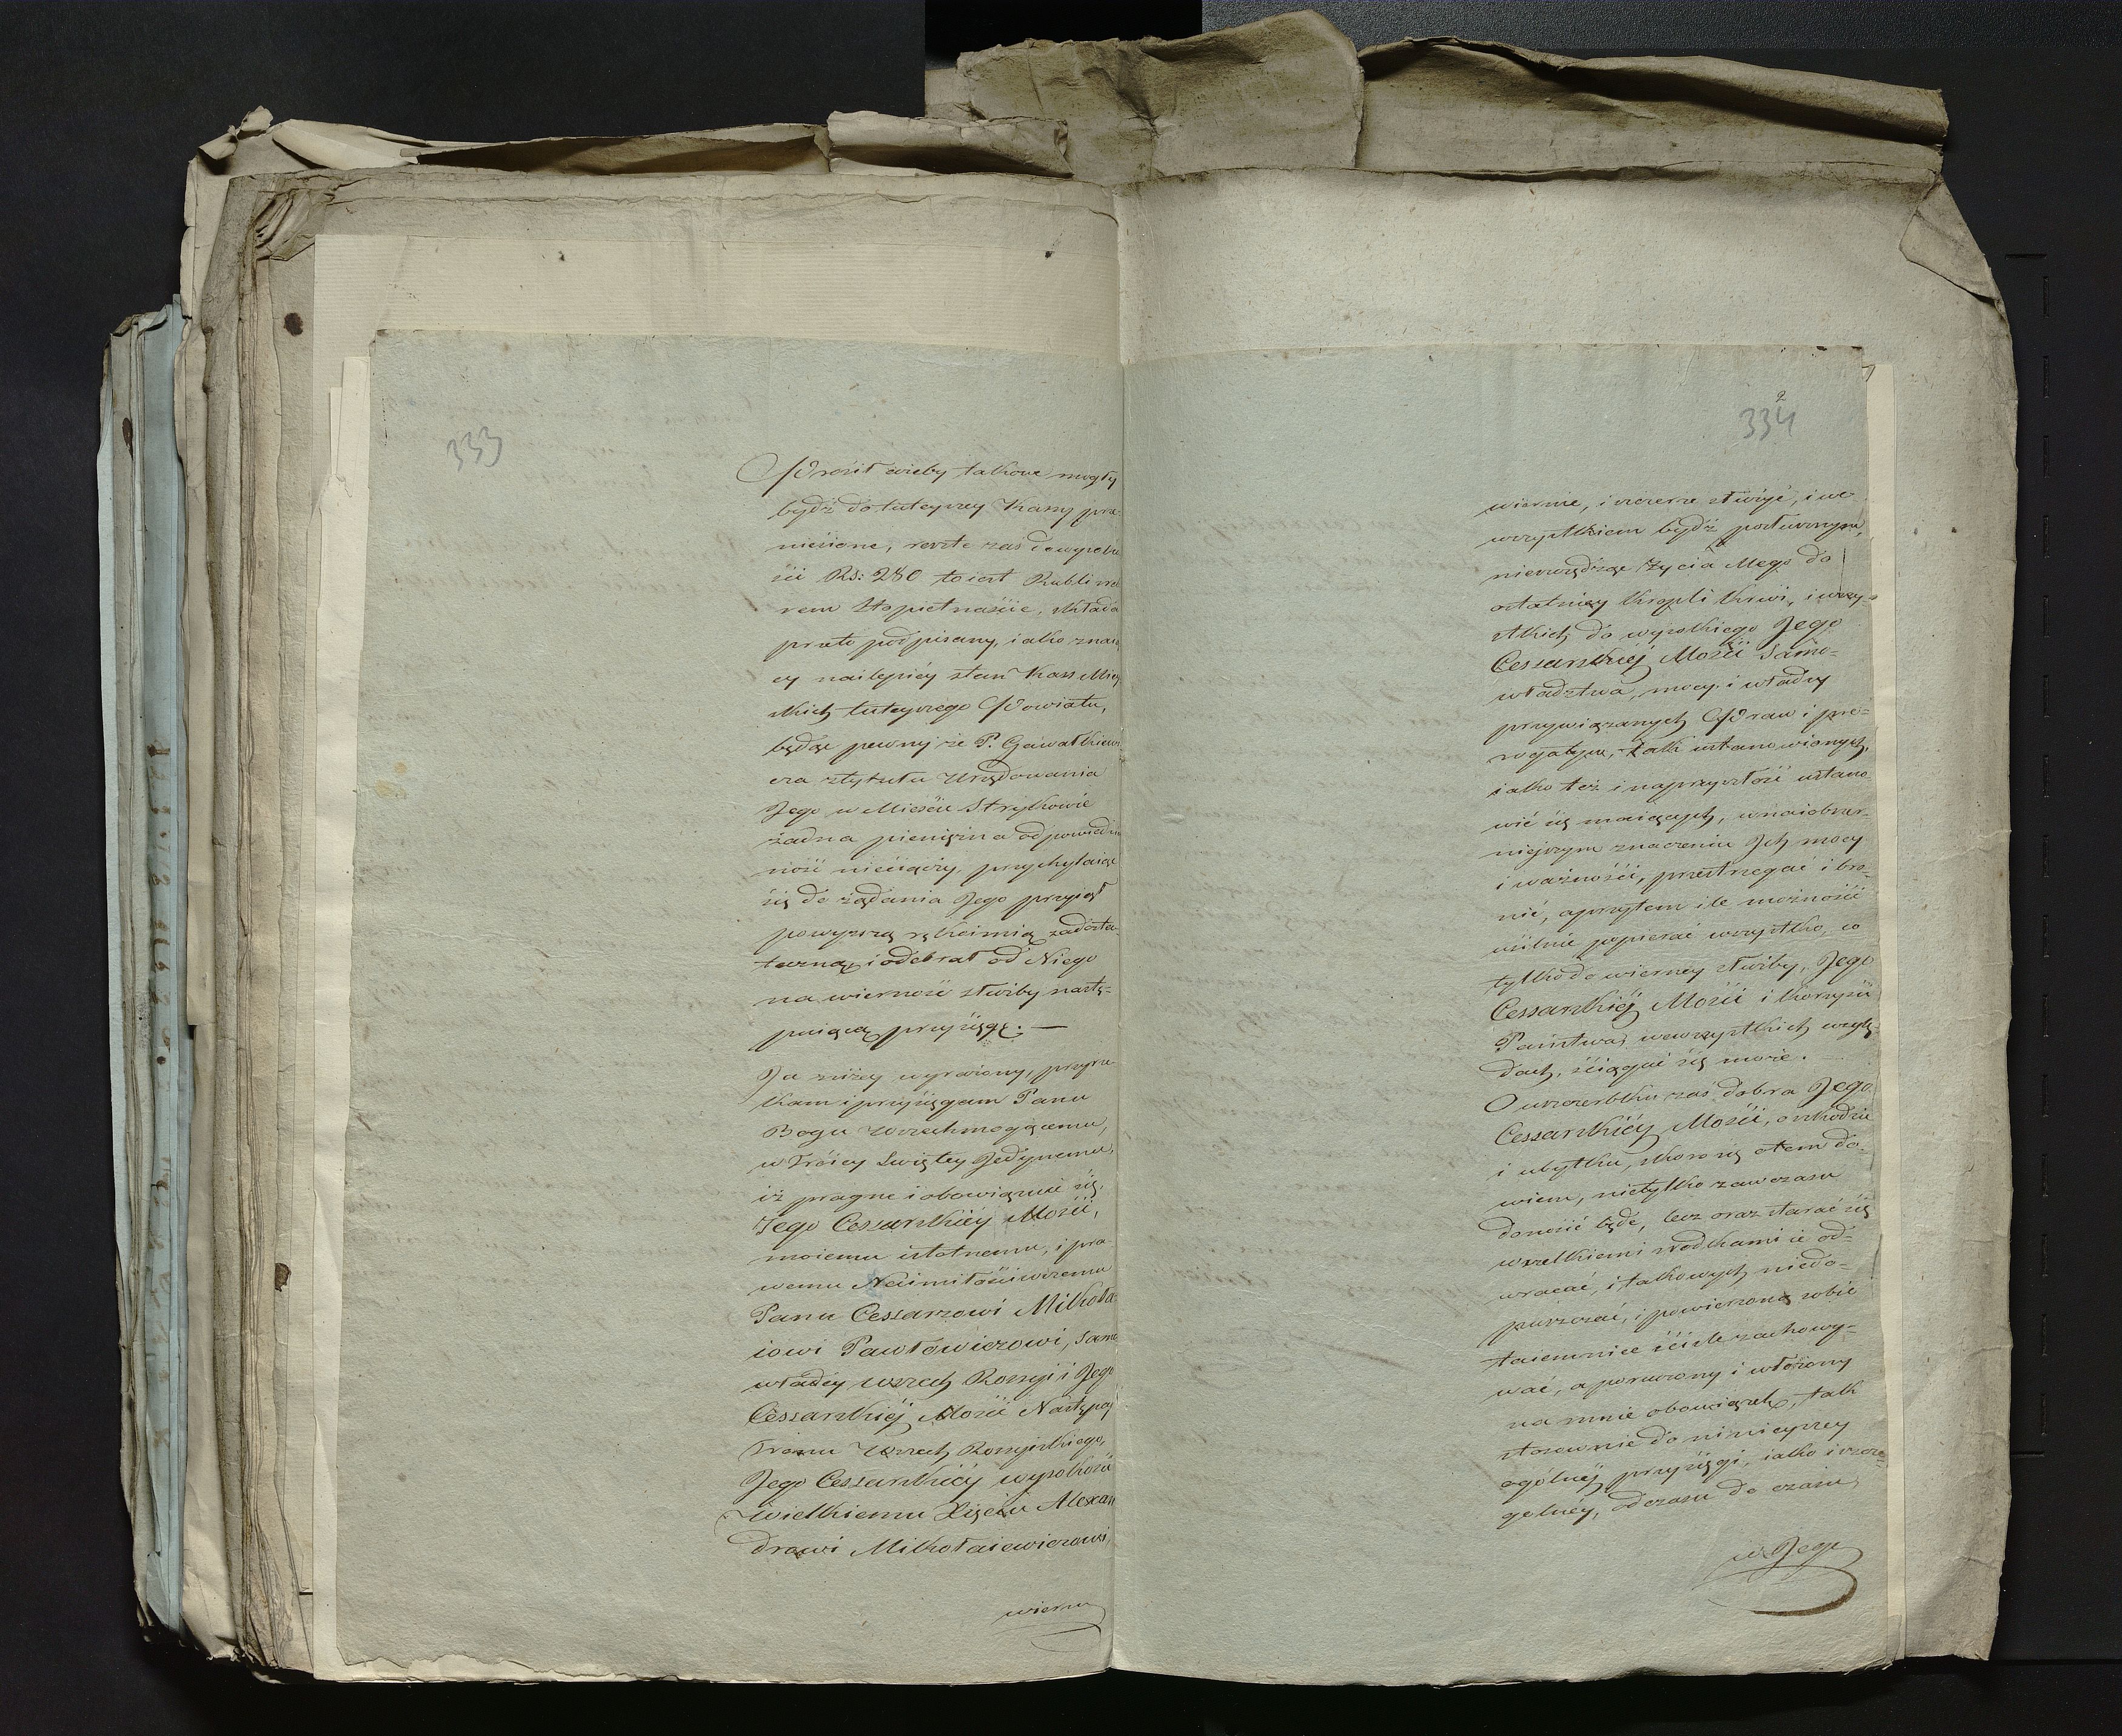 333
Prosił ażeby takowe mogły
bydź do tuteyszey Kassy prze-
niesione, resztę zaś do wysoko
ści Rs: 280 to iest Rubli sre
rem Sto piętnaście, składa
przeto podpisany, iako znaią
cy nailepiéy stan Kass Miey
skich tuteyszego Powiatu,
będąc pewny że P. Gawałkiewi
cza z tytułu Urzędowania
Jego w Mieście Strykowie
żadna pieniężna odpowiedzial
ność nieciąży, przychylaiąc
się do żądania Jego przyiął
powyższą rękoimią za dosta-
teczną, i odebrał od Niego
na wierność służby nastę-
puiącą przysięgę. —
Ja niżey wyrażony, przyrze
kam i przysięgam Panu
Bogu Wszechmogącemu,
w Tróicy Świętey Jedynemu,
iż pragnę i obowiązuię się,
Jego Cessarskiéy Mości,
moiemu istotnemu, i pra
wemu Naimiłościwszemu
Panu Cessarzowi Mikoła-
iowi Pawłowiczowi, samo
władcy Wszech Rossyi i Jego
Cessarskiéj Mości Następcy
Tronu Wszech Rossyiskiego,
Jego Cessarskiéy wysokości
Wielkiemu Xięciu Alexan
drowi Mikołaiewiczowi,
wiernie
2
334
wiernie, i szczerze służyć, i we
wszystkiem bydź posłusznym,
nieszczędząc Życia Mego do
ostatniey kropli krwi, i wszy-
stkich do wysokiego Jego
Cessarskiéj Mości Samo-
władztwa, mocy i władzy
przywiązanych Praw i pre-
rogatyw, tak ustanowionych,
iako też i na przyszłość ustano-
wić się maiących, w naiobszer-
niejszym znaczeniu Ich mocy
i ważności, przestrzegać i bro-
nić, a przytem ile możności
usilnie popierać wszystko, co
tylko do wierney służby, Jego
Cessarskiéj Mości i korzyści
Państwa, we wszystkich wzglę-
dach, ściągać się może.
O uszczerbku zaś dobra Jego
Cessarskiéy Mości, o szkodzie
i ubytku, skoro się o tem do-
wiem, nietylko zawczasu
donosić będę, lecz oraz starać się
wszelkiemi środkami ie od-
wracać, i takowych niedo-
puszczać, i powierzoną sobie
taiemnicę ściśle zachowy-
wać, a poruczony i włożony
na mnie obowiązek, tak
stosownie do ninieyszey
ogólnéj przysięgi, iako i szcze-
gólnéy, od czasu do czasu
w Jego